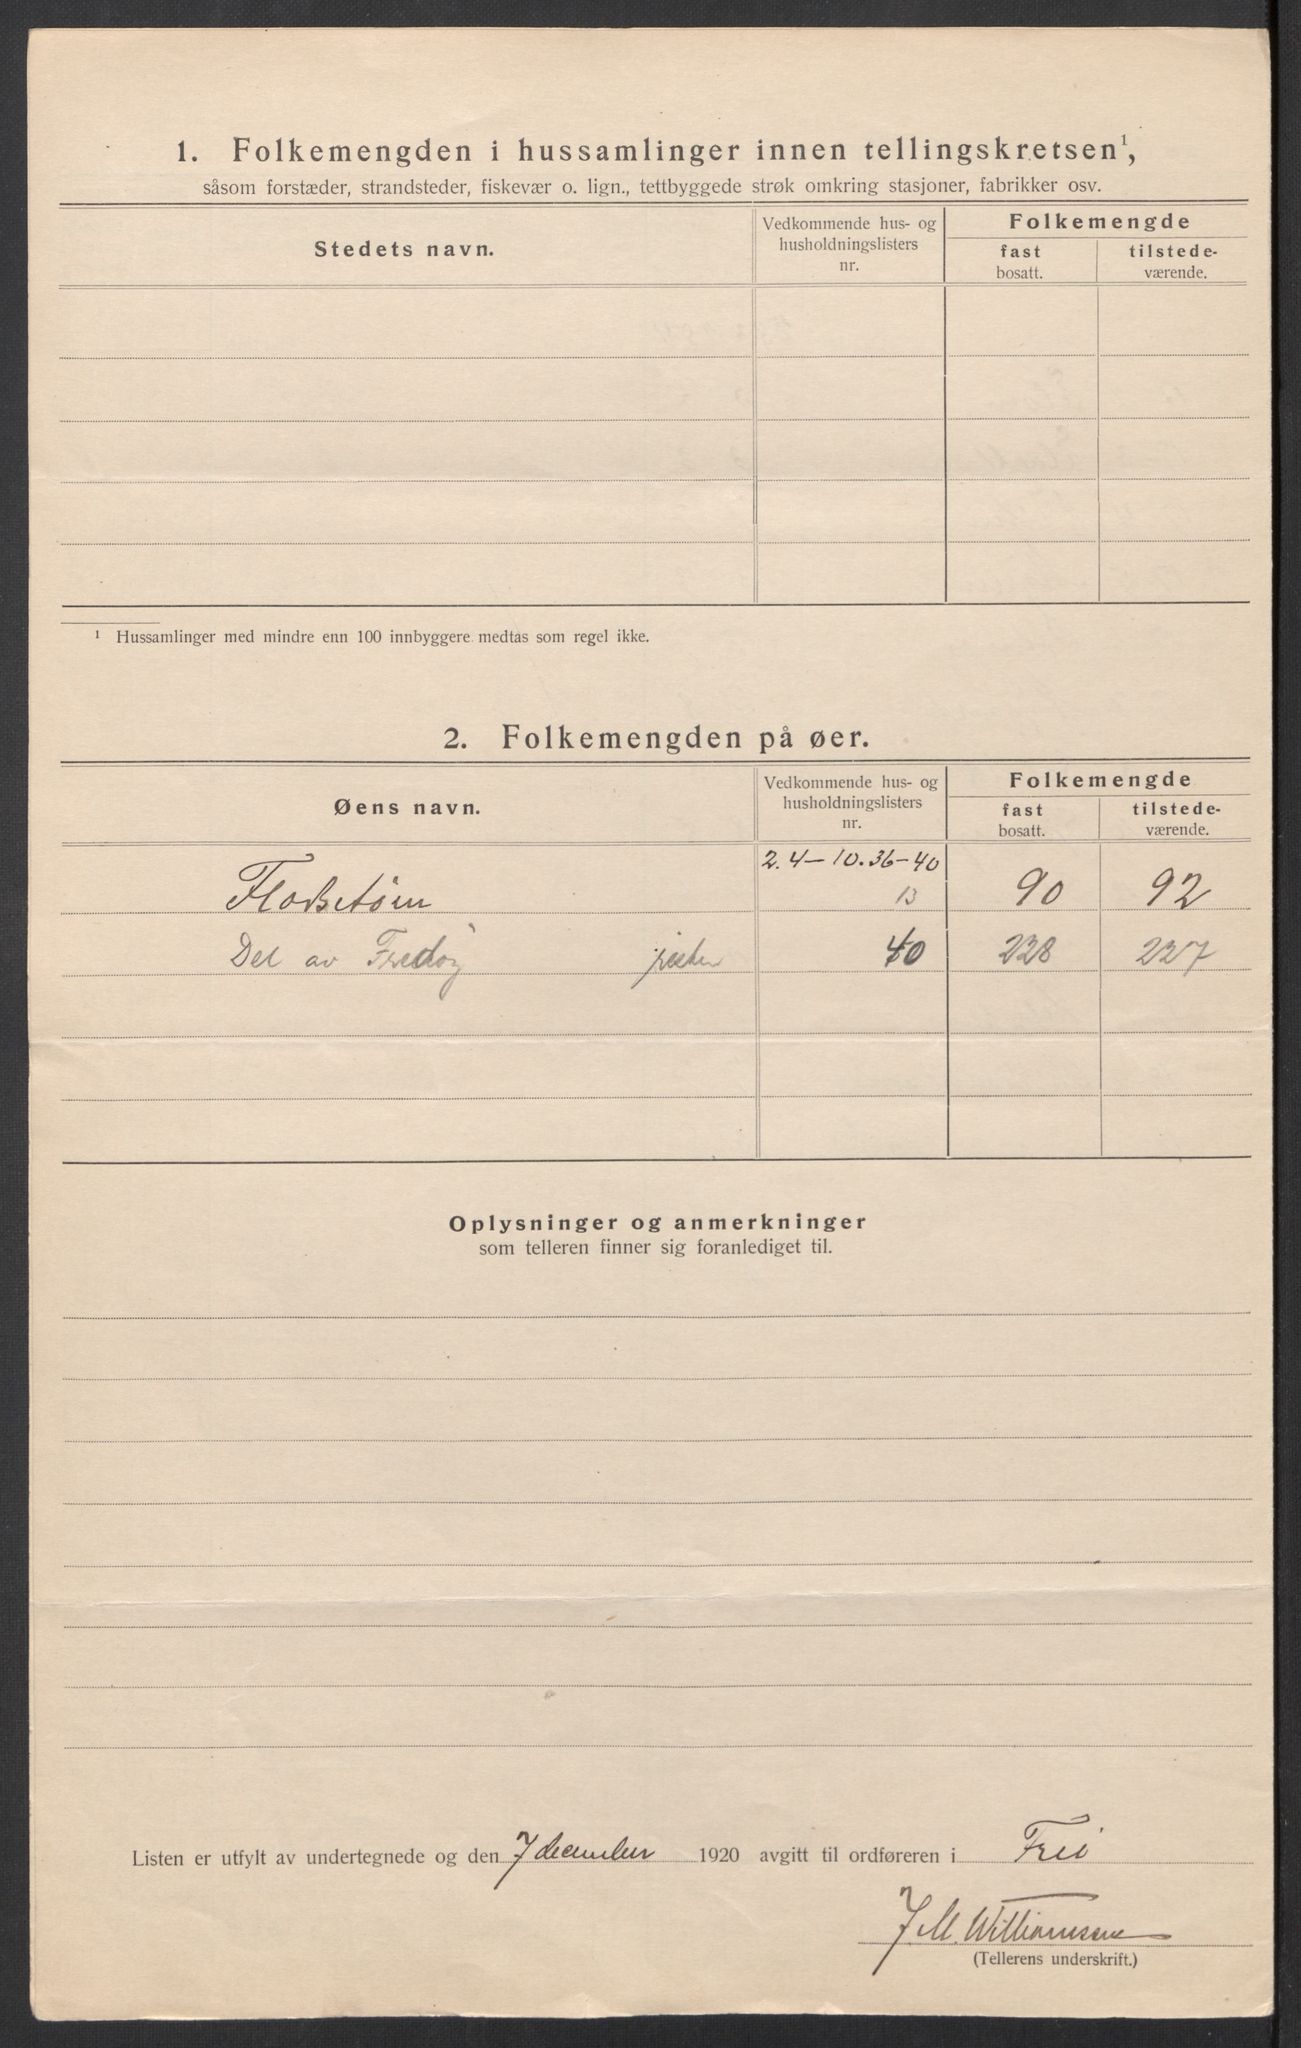 1. Folkemengden i hussamlinger innen tellingskretsen¹,
såsom forstæder, strandsteder, fiskevær o. lign., tettbyggede strøk omkring stasjoner, fabrikker osv.
Stedets navn.
Vedkommende hus- og husholdningslisters nr.
Folkemengde
fast bosatt.
tilstede-værende.
¹ Hussamlinger med mindre enn 100 innbyggere medtas som regel ikke.
2. Folkemengden på øer.
Øens navn.
Vedkommende hus- og husholdningslisters nr.
Folkemengde
fast bosatt.
tilstede-værende.
2.4–10.36–40
13 90 92
Del av Fredøy 40 228 227
Oplysninger og anmerkninger
som telleren finner sig foranlediget til.
Listen er utfylt av undertegnede og den 7 december 1920 avgitt til ordføreren i Frei
J. M. Williamsen
(Tellerens underskrift.)